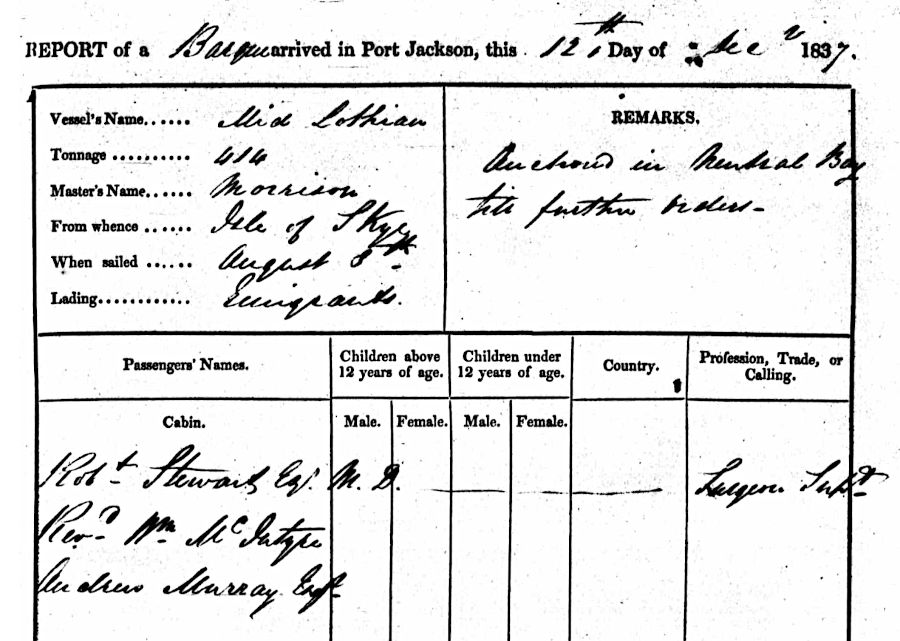 REPORT of a Barque arrived in Port Jackson, this 12th Day of Decr 1837.
Vessel's Name...... Mid Lothian
Tonnage .......... 414
Master's Name...... Morrison
From whence ...... Isle of Skye
When sailed ...... August 8th
Lading............ Emigrants.
REMARKS.
Anchored in Neutral Bay
till further orders-
Passengers' Names.
Children above
12 years of age.
Children under
12 years of age.
Country.
Profession, Trade, or
Calling.
Cabin.
Male. Female. Male. Female.
Robt Stewart Esqr. M. D. Surgeon Supdt
Revd Wm McIntyre
Andrew Murray Esqr